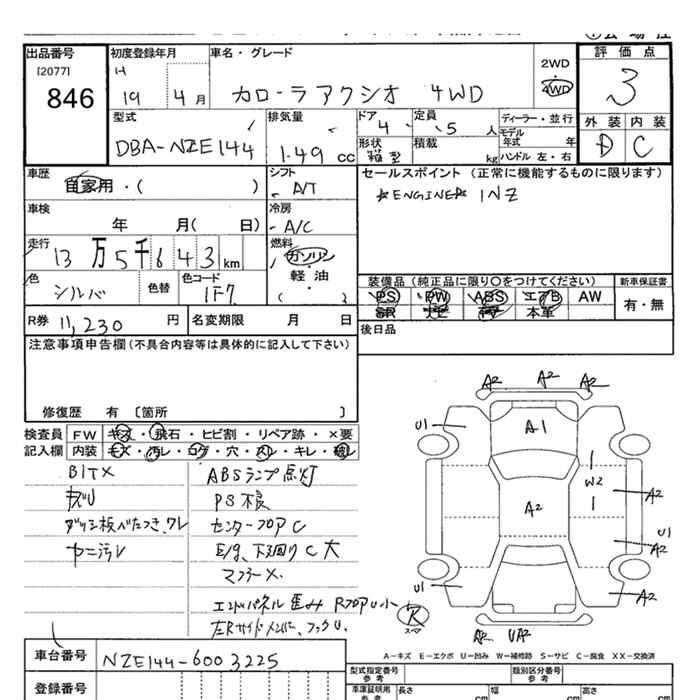 出品番号
[2077]
846
初度登録年月
H
19 4 月
車名・グレード
カローラアクシオ 4WD
2WD
4WD
評価点
3
型式
DBA-NZE144
排気量
1.49 cc
ドア
4
定員
5 人
形状
箱型
積載
kg
ディーラー・並行
モデル
年式 年
ハンドル 左・右
外装 内装
D C
車歴
自家用・( )
シフト
A/T
セールスポイント (正常に機能するものに限ります)
*ENGINE* 1NZ
車検
年 月( 日)
冷房
A/C
走行
13万5千643km
燃料
ガソリン
軽・油
( )
色
シルバ
色替
色コード
1F7
装備品 (純正品に限り○をつけてください)
新車保証書
PS PW ABS エアB AW
SR ナビ TV 本革
有・無
R券 11,230 円
名変期限 月 日
後日品
注意事項申告欄(不具合内容等は具体的に記入して下さい)
修復歴 有 〔箇所 〕
検査員
記入欄
FW キズ・飛石・ヒビ割・リペア跡・×要
内装 キズ・汚レ・コゲ・穴・スレ・キレ・破レ
ABSランプ点灯
PS不良
ダッシ板べたつき、ワレ
センターフロアC
ヤニ汚レ
E/g、下廻りC大
マフラーX
エンドパネル歪み RフロアU小
左RサイドメンバーフックU
A2 A2 A2
U1
A1
W2
A2
A2
U1
A2
U1
A2
R
スペア
A2 UA2
A－キズ E－エクボ U－凹み W－補修跡 S－サビ C－腐食 XX－交換済
車台番号
NZE144-6003225
登録番号
型式指定番号
参考
類別区分番号
参考
車庫証明用
参考
長さ cm
幅 cm
高さ cm